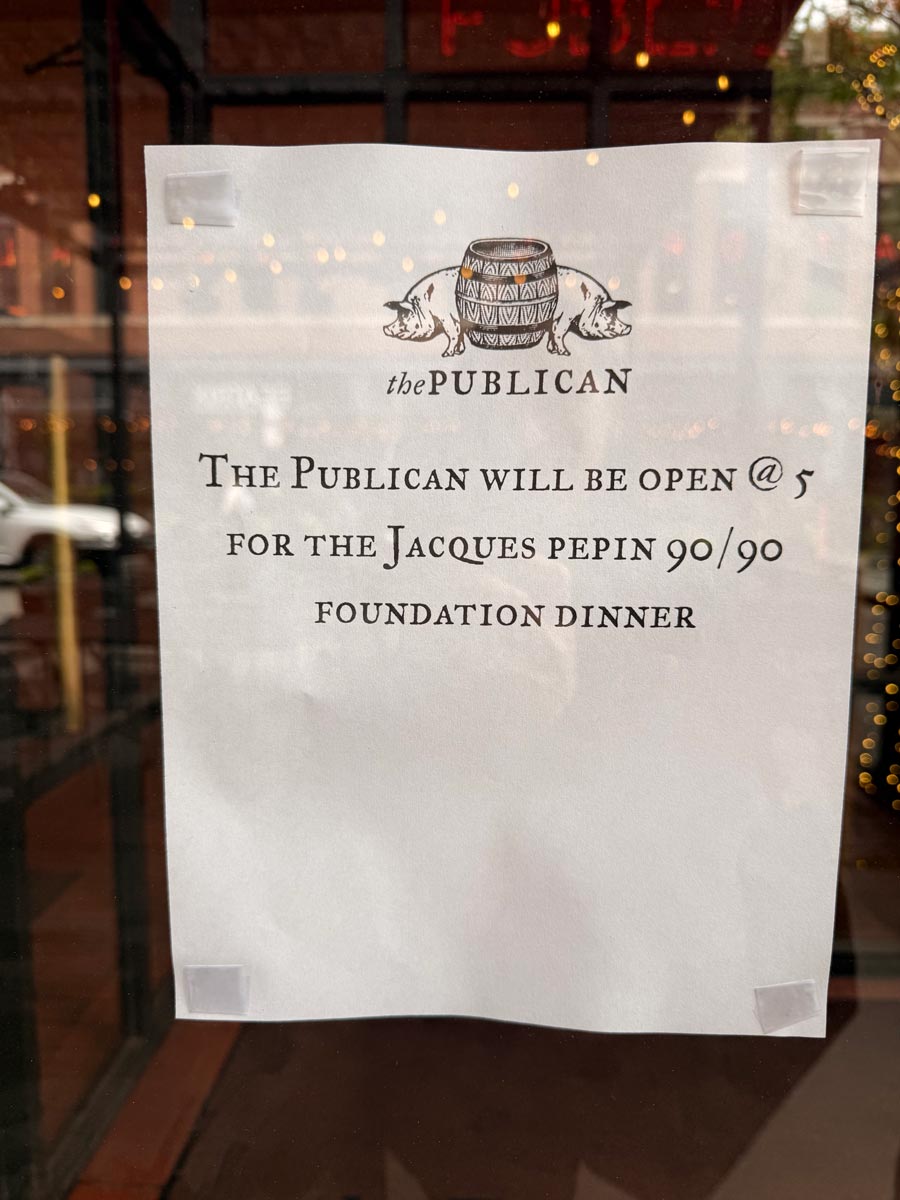 thePUBLICAN
THE PUBLICAN WILL BE OPEN @ 5
FOR THE JACQUES PEPIN 90/90
FOUNDATION DINNER